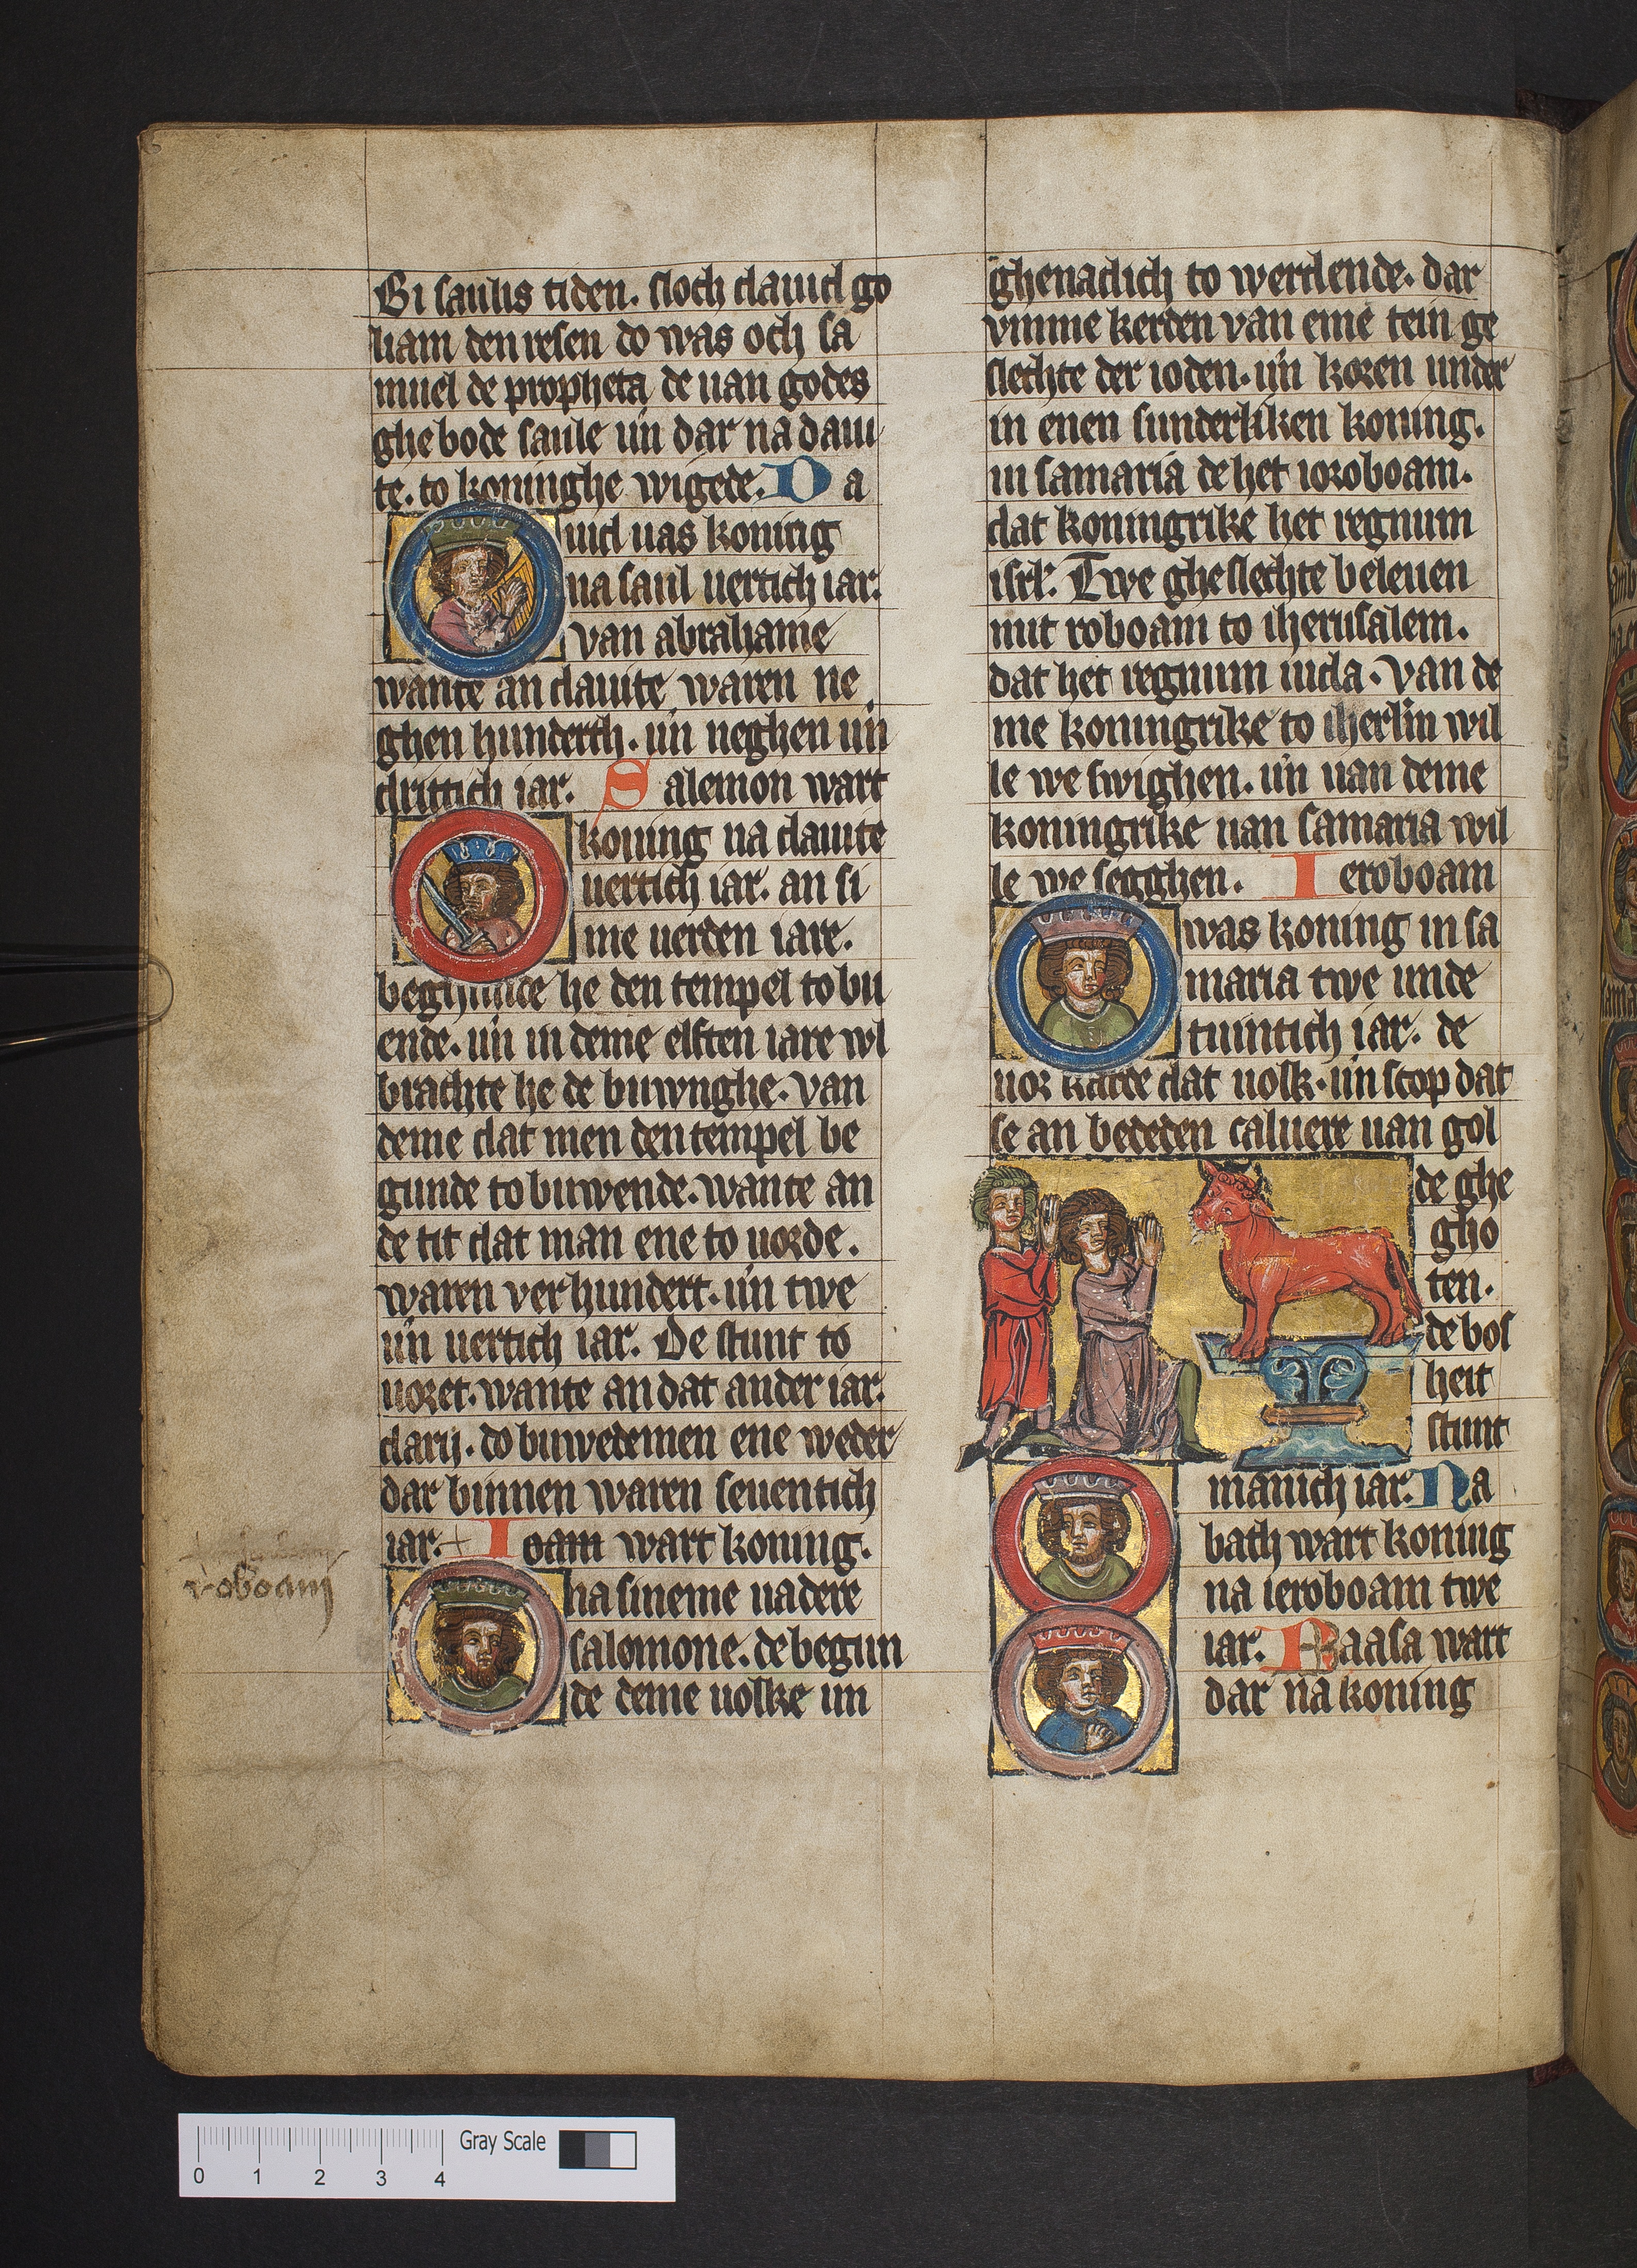 Bi saulis tiden. sloch dauid go
liam den resen do was och sa
muel de propheta de uan godes
ghebode saule un̄ dar na daui
te. to koninghe wigede. Da
uid uas koning
na saul uertich iar.
van abrahame
wante an dauite waren ne
ghen hunderth. un̄ neghen un̄
drittich iar. Salemon wart
koning na dauite
uertich iar. an si
me uerden iare.
beghunde he den tempel to bu
ende. un̄ in deme elften iare wl
brachte he de buwnghe. van
deme dat men den tempel be
gunde to buwende. wante an
de tit dat man ene to uorde.
waren verhundert. un̄ twe
un̄ uertich iar. De stunt to
uoret. wante an dat ander iar.
darij. do buwedemen ene weder
dar binnen waren seuentich
iar. + Ioam wart koning.
roboam
na sineme uadere
salomone. de begun
de deme uolke un
ghenadich to werdende. dar
vmme kerden van eme tein ge
slechte der ioden. un̄ koren under
in enen sunderliken koning.
in samaria de het ioroboam.
dat koningrike het regnum
isrl'. Twe gheslechte beleuen
mit roboam to iherusalem.
dat het regnum iuda. van de
me koningrike to iherl'm wil
le we swighen. un̄ uan deme
koningrike uan samaria wil
le we segghen. Ieroboam
was koning in sa
maria twe unde
tuintich iar. de
uor karde dat uolk. un̄ scop dat
se an bededen caluere uan gol
de ghe
gho
ten.
de bos
heit
stunt
manich iar. Na
bath wart koning
na ieroboam twe
iar. Baasa wart
dar na koning
0 1 2 3 4 Gray Scale